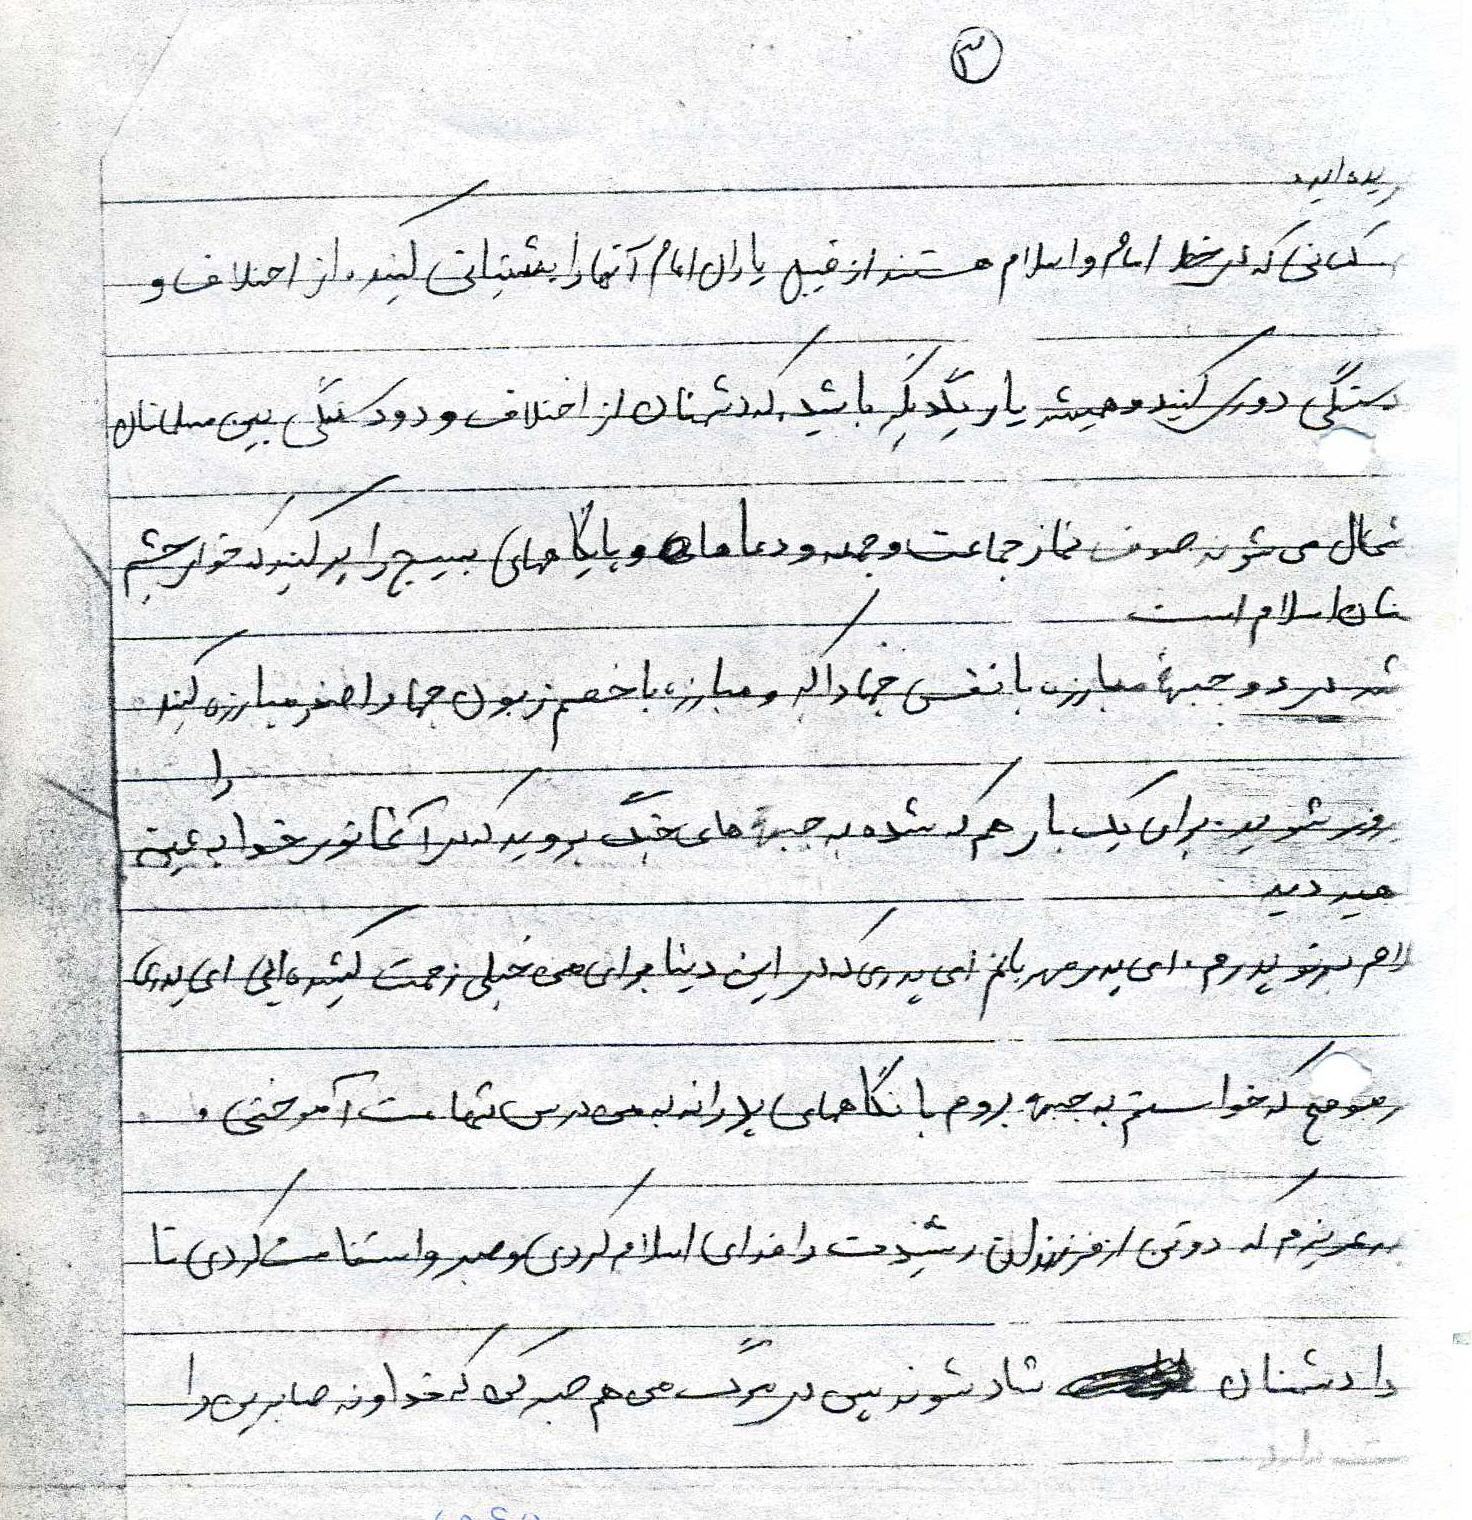 ۳
کسانی که در خط امام و اسلام هستند از قبیل یاران امام آنها را پشتیبانی کنید. از اختلاف و
دستگی دوری کنید و همیشه یار یگدیگر باشید. که دشمنان از اختلاف و دودستگی بین مسلمانان
می شوند صف نماز جماعت و جمعه و دعاهای و پایگاهای بسیج را پر کنید که خوار چشم
اسلام است
در دو جبهۀ مبارزه با نفس جهاد اکبر و مبارزه با خصم زبون جهاد اصغر مبارزه کنید
شوید. برای یک بار هم که شده به جبهۀ های جنگ بروید که در آنجا نور خدا را به عینه
دید
بر تو پدرم. ای پدر مهربانم ای پدری که در این دینا برای من خیلی زحمت کشیده ایی ای پدری
که خواستم به جبهه بروم با نگاهای پدرانه به من درس شهامت آموختی و
عزیزم که دو تن از فرزندان رشیدت را فدای اسلام کردی و صبر و استقامت کردی تا
دشمنان شاد شوند پس در مرگ من هم صبر کن که خداوند صابرین را
دارد